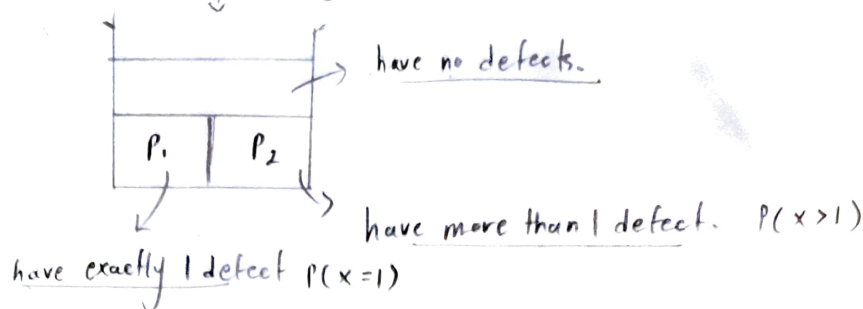 have no defects.
P₁ P₂
have more than 1 defect. P(x>1)
have exactly 1 defect P(x=1)